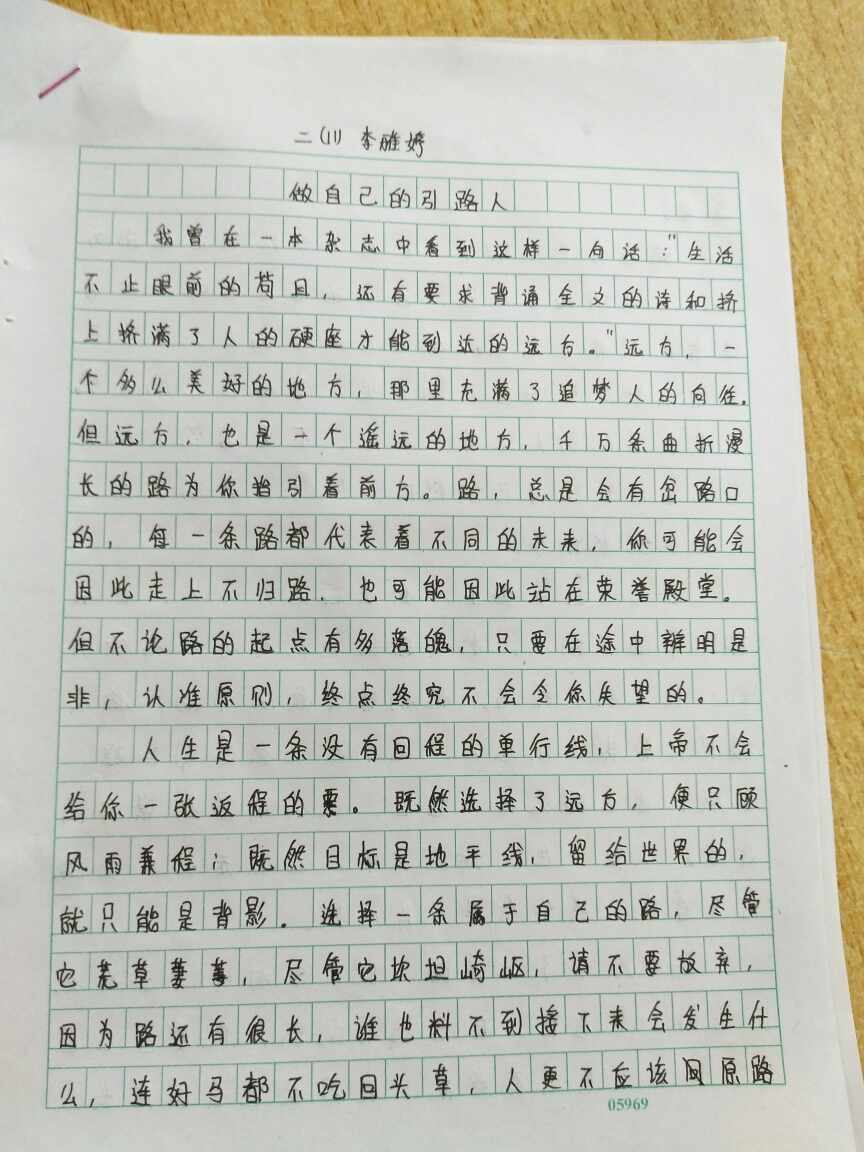 二(11) 李雅娉
做自己的引路人
我曾在一本杂志中看到这样一句话："生活
不止眼前的苟且，还有要求背诵全文的诗和挤
上挤满了人的硬座才能到达的远方。"远方，一
个多么美好的地方，那里充满了追梦人的向往。
但远方，也是一个遥远的地方，千万条曲折漫
长的路为你指引着前方。路，总是会有岔路口
的，每一条路都代表着不同的未来，你可能会
因此走上不归路，也可能因此站在荣誉殿堂。
但不论路的起点有多落魄，只要在途中辨明是
非，认准原则，终点终究不会令你失望的。
人生是一条没有回程的单行线，上帝不会
给你一张返程的票。既然选择了远方，便只顾
风雨兼程；既然目标是地平线，留给世界的，
就只能是背影。选择一条属于自己的路，尽管
它荒草萋萋，尽管它坎坦崎岖，请不要放弃，
因为路还有很长，谁也料不到接下来会发生什
么，连好马都不吃回头草，人更不应该回原路
05969